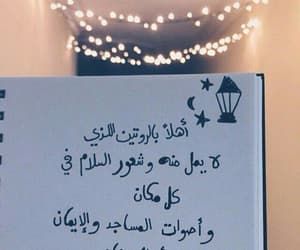 أهلاً بالروتين اللذي
لا يمل منه وشعور السلام في
كل مكان
وأصوات المساجد والإيمان